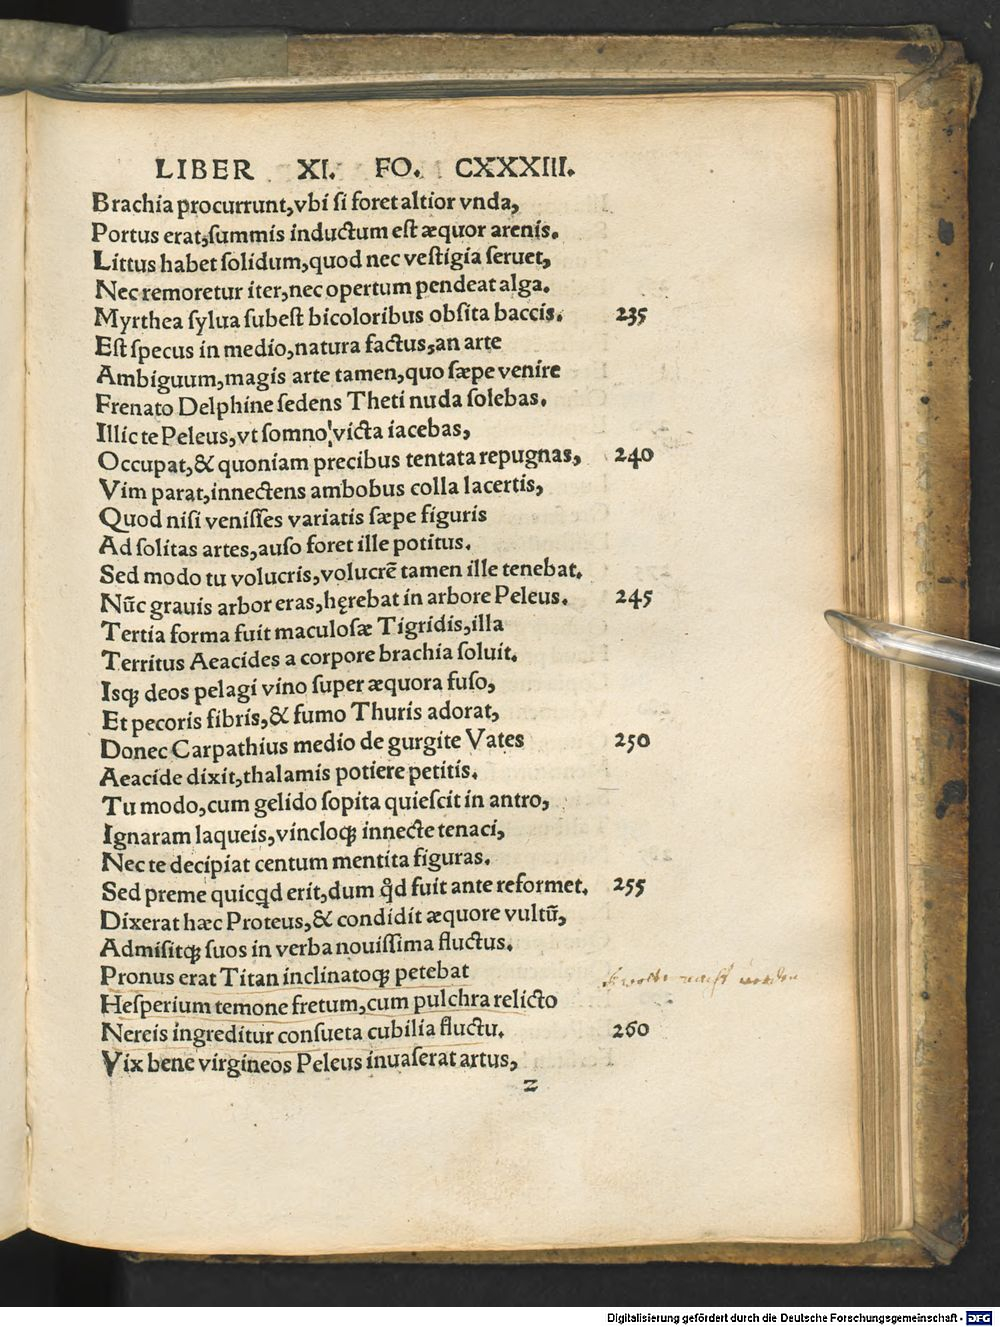 LIBER XI. FO. CXXXIII.
Brachia procurrunt,vbi ſi foret altior vnda,
Portus erat,ſummis inductum eſt æquor arenis.
Littus habet ſolidum,quod nec veſtigia ſeruet,
Nec remoretur iter,nec opertum pendeat alga.
Myrthea ſylua ſubeſt bicoloribus obſita baccis. 235
Eſt ſpecus in medio,natura factus,an arte
Ambiguum,magis arte tamen,quo ſæpe venire
Frenato Delphine ſedens Theti nuda ſolebas.
Illic te Peleus,vt ſomno victa iacebas,
Occupat,& quoniam precibus tentata repugnas, 240
Vim parat,innectens ambobus colla lacertis,
Quod niſi veniſſes variatis ſæpe figuris
Ad ſolitas artes,auſo foret ille potitus.
Sed modo tu volucris,volucrē tamen ille tenebat.
Nūc grauis arbor eras,hęrebat in arbore Peleus. 245
Tertia forma fuit maculoſæ Tigridis,illa
Territus Aeacides a corpore brachia ſoluit.
Isqꝫ deos pelagi vino ſuper æquora fuſo,
Et pecoris fibris,& fumo Thuris adorat,
Donec Carpathius medio de gurgite Vates 250
Aeacide dixit,thalamis potiere petitis.
Tu modo,cum gelido ſopita quieſcit in antro,
Ignaram laqueis,vincloqꝫ innecte tenaci,
Nec te decipiat centum mentita figuras.
Sed preme quicqd erit,dum qd fuit ante reformet. 255
Dixerat hæc Proteus,& condidit æquore vultū,
Admiſitqꝫ ſuos in verba nouiſſima fluctus.
Pronus erat Titan inclinatoqꝫ petebat
Heſperium temone fretum,cum pulchra relicto
Nereis ingreditur conſueta cubilia fluctu. 260
Vix bene virgineos Peleus inuaſerat artus,
z
Digitalisierung gefördert durch die Deutsche Forschungsgemeinschaft - DFG